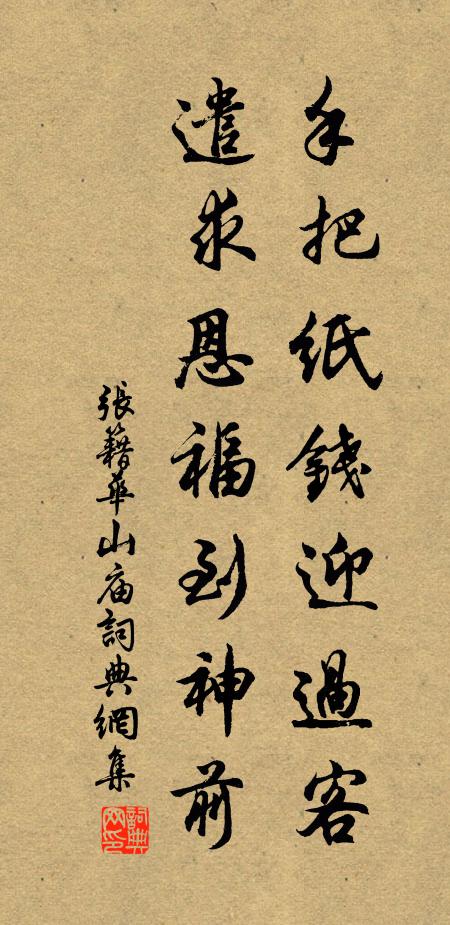 手把纸錢迎過客
遣求恩福到神前
張籍華山庙詞典網集
詞典网印